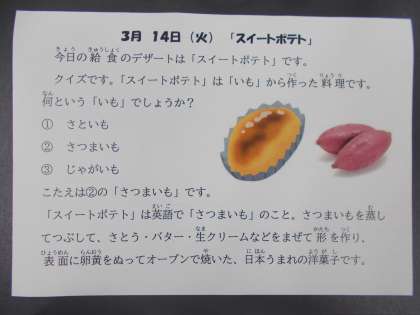 3月 14日（火） 「スイートポテト」
今日の給食のデザートは「スイートポテト」です。
クイズです。「スイートポテト」は「いも」から作った料理です。
何という「いも」でしょうか？
① さといも
② さつまいも
③ じゃがいも
こたえは②の「さつまいも」です。
「スイートポテト」は英語で「さつまいも」のこと。さつまいもを蒸し
てつぶして、さとう・バター・生クリームなどをまぜて形を作り、
表面に卵黄をぬってオーブンで焼いた、日本うまれの洋菓子です。